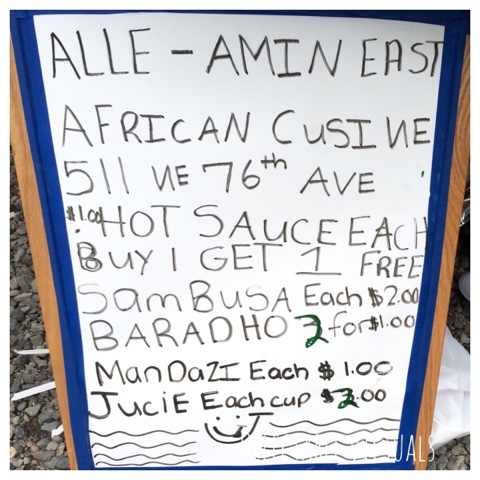 ALLE - AMIN EAST
AFRICAN CUSINE
511 NE 76th AVE
$1.00 HOT SAUCE EACH
BUY 1 GET 1 FREE
SamBUSA Each $2.00
BARADHO 3 for $1.00
ManDaZI Each $1.00
JuciE Each cup $2.00